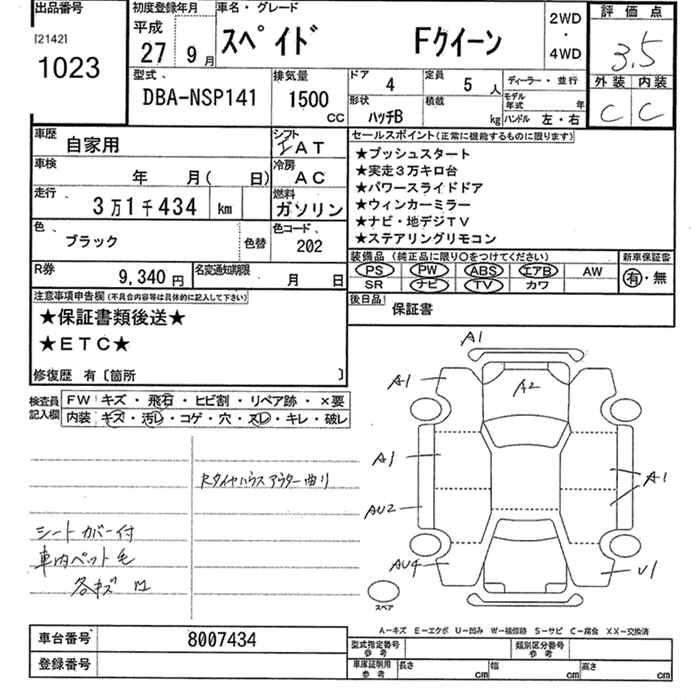 出品番号
[2142]
1023
初度登録年月
平成 27 9 月
車名・グレード
スペイド Fクイーン
2WD
・
4WD
評価点
3.5
型式.
DBA-NSP141
排気量
1500 CC
ドア 4
定員 5 人
ディーラー・並行
外装 内装
C C
形状 ハッチB
積載 kg
モデル年式 年
ハンドル 左・右
車歴 自家用
シフト AT
セールスポイント(正常に機能するものに限ります)
★プッシュスタート
★実走3万キロ台
★パワースライドドア
★ウィンカーミラー
★ナビ・地デジTV
★ステアリングリモコン
車検 年 月( 日)
冷房 AC
走行 3万1千434 km
燃料 ガソリン
色 ブラック
色替
色コード. 202
装備品(純正品に限り〇をつけてください)
新車保証書
PS PW ABS エアB AW
有・無
SR ナビ TV カワ
R券 9,340 円
名変通知期限 月 日
後日品 保証書
注意事項申告欄(不具合内容等は具体的に記入して下さい)
★保証書類後送★
★ETC★
修復歴 有〔箇所 〕
検査員記入欄
FW キズ・飛石・ヒビ割・リペア跡・×要
内装 キズ・汚レ・コゲ・穴・スレ・キレ・破レ
Rタイヤハウスアウター曲リ
シートカバー付
車内ペット毛
各キズ凹
A1
A1
A2
A1
A1
AU2
AU4
U1
スペア
A-キズ E-エクボ U-凹み W-補修跡 S-サビ C-腐食 XX-交換済
車台番号 8007434
登録番号
型式指定番号参考
類別区分番号参考
車庫証明用参考
長さ cm
幅 cm
高さ cm